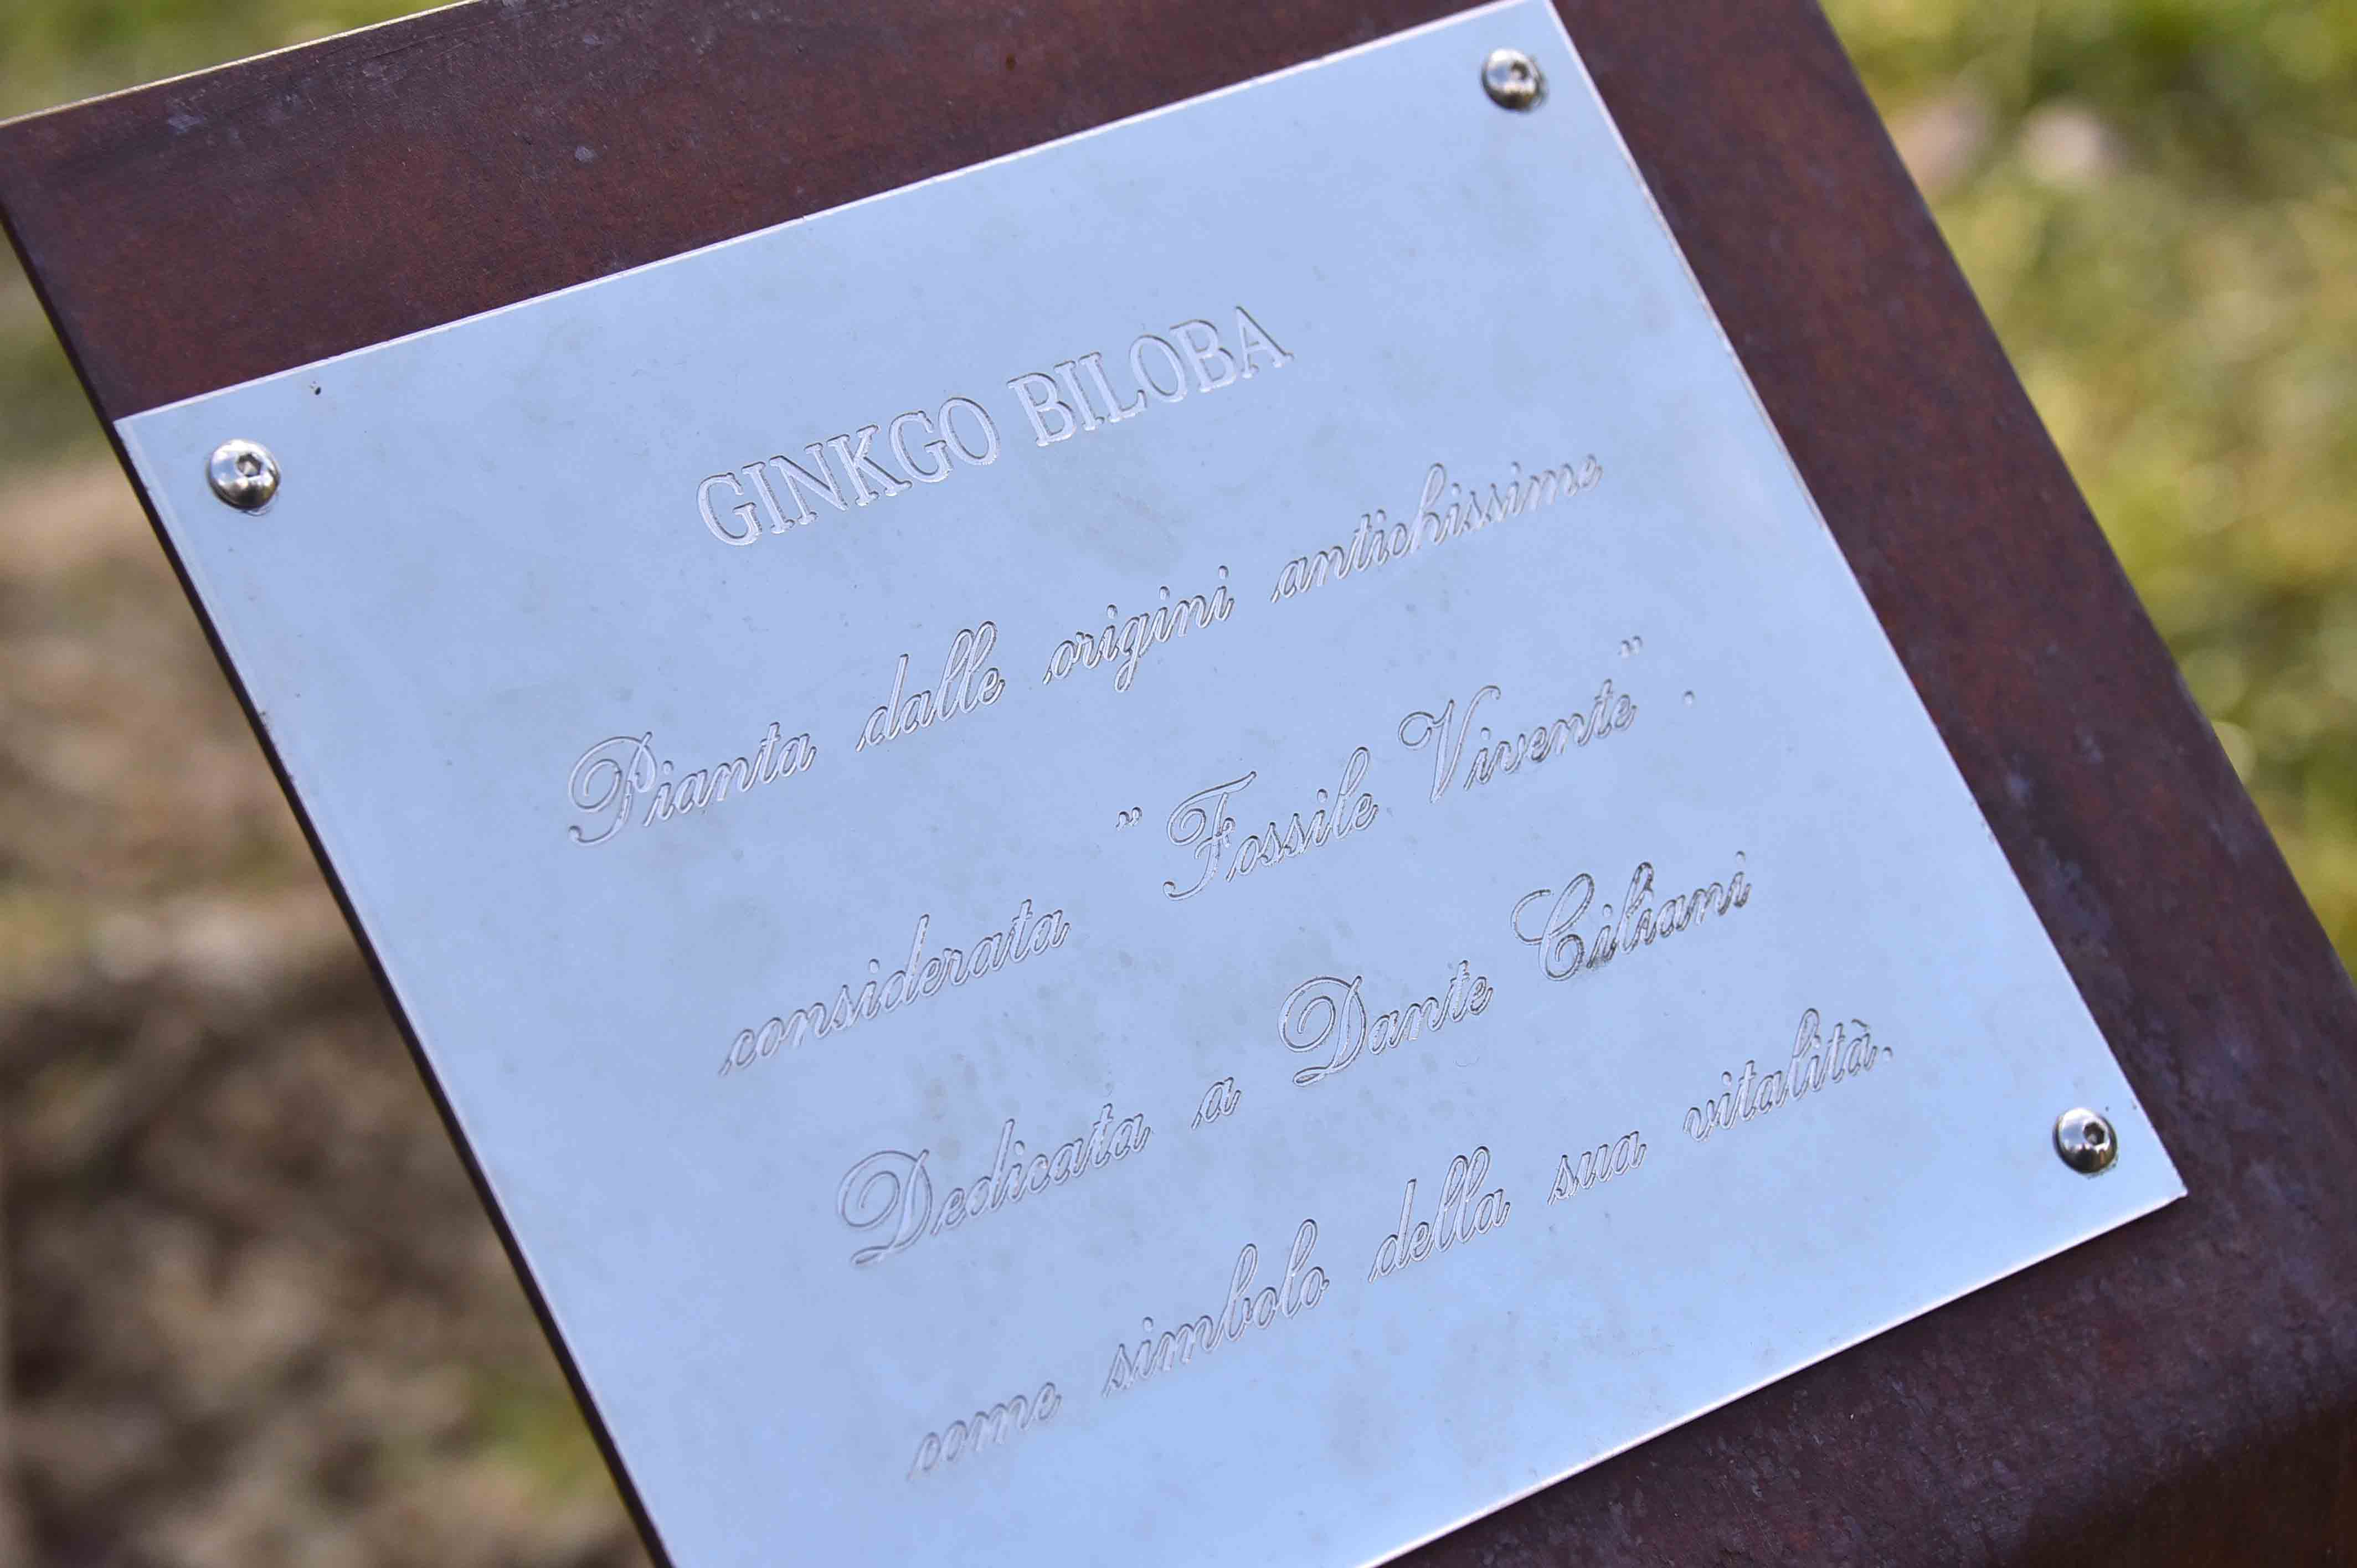 GINKGO BILOBA
Pianta dalle origini antichissime
considerata "Fossile Vivente".
Dedicata a Dante Ciliani
come simbolo della sua vitalità.